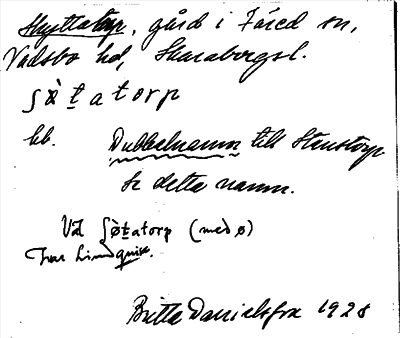 Skyttatorp, gård i Färed sn,
Vadsbo hd, Skarabergsl.
ʃö̀t̲atorp
bb. Dubbelnamn till Stenstorp
Se detta namn.
Väl ʃø̀t̲atorp (med ø)
Ivar Lindquist.
Britta Danielsson 1928